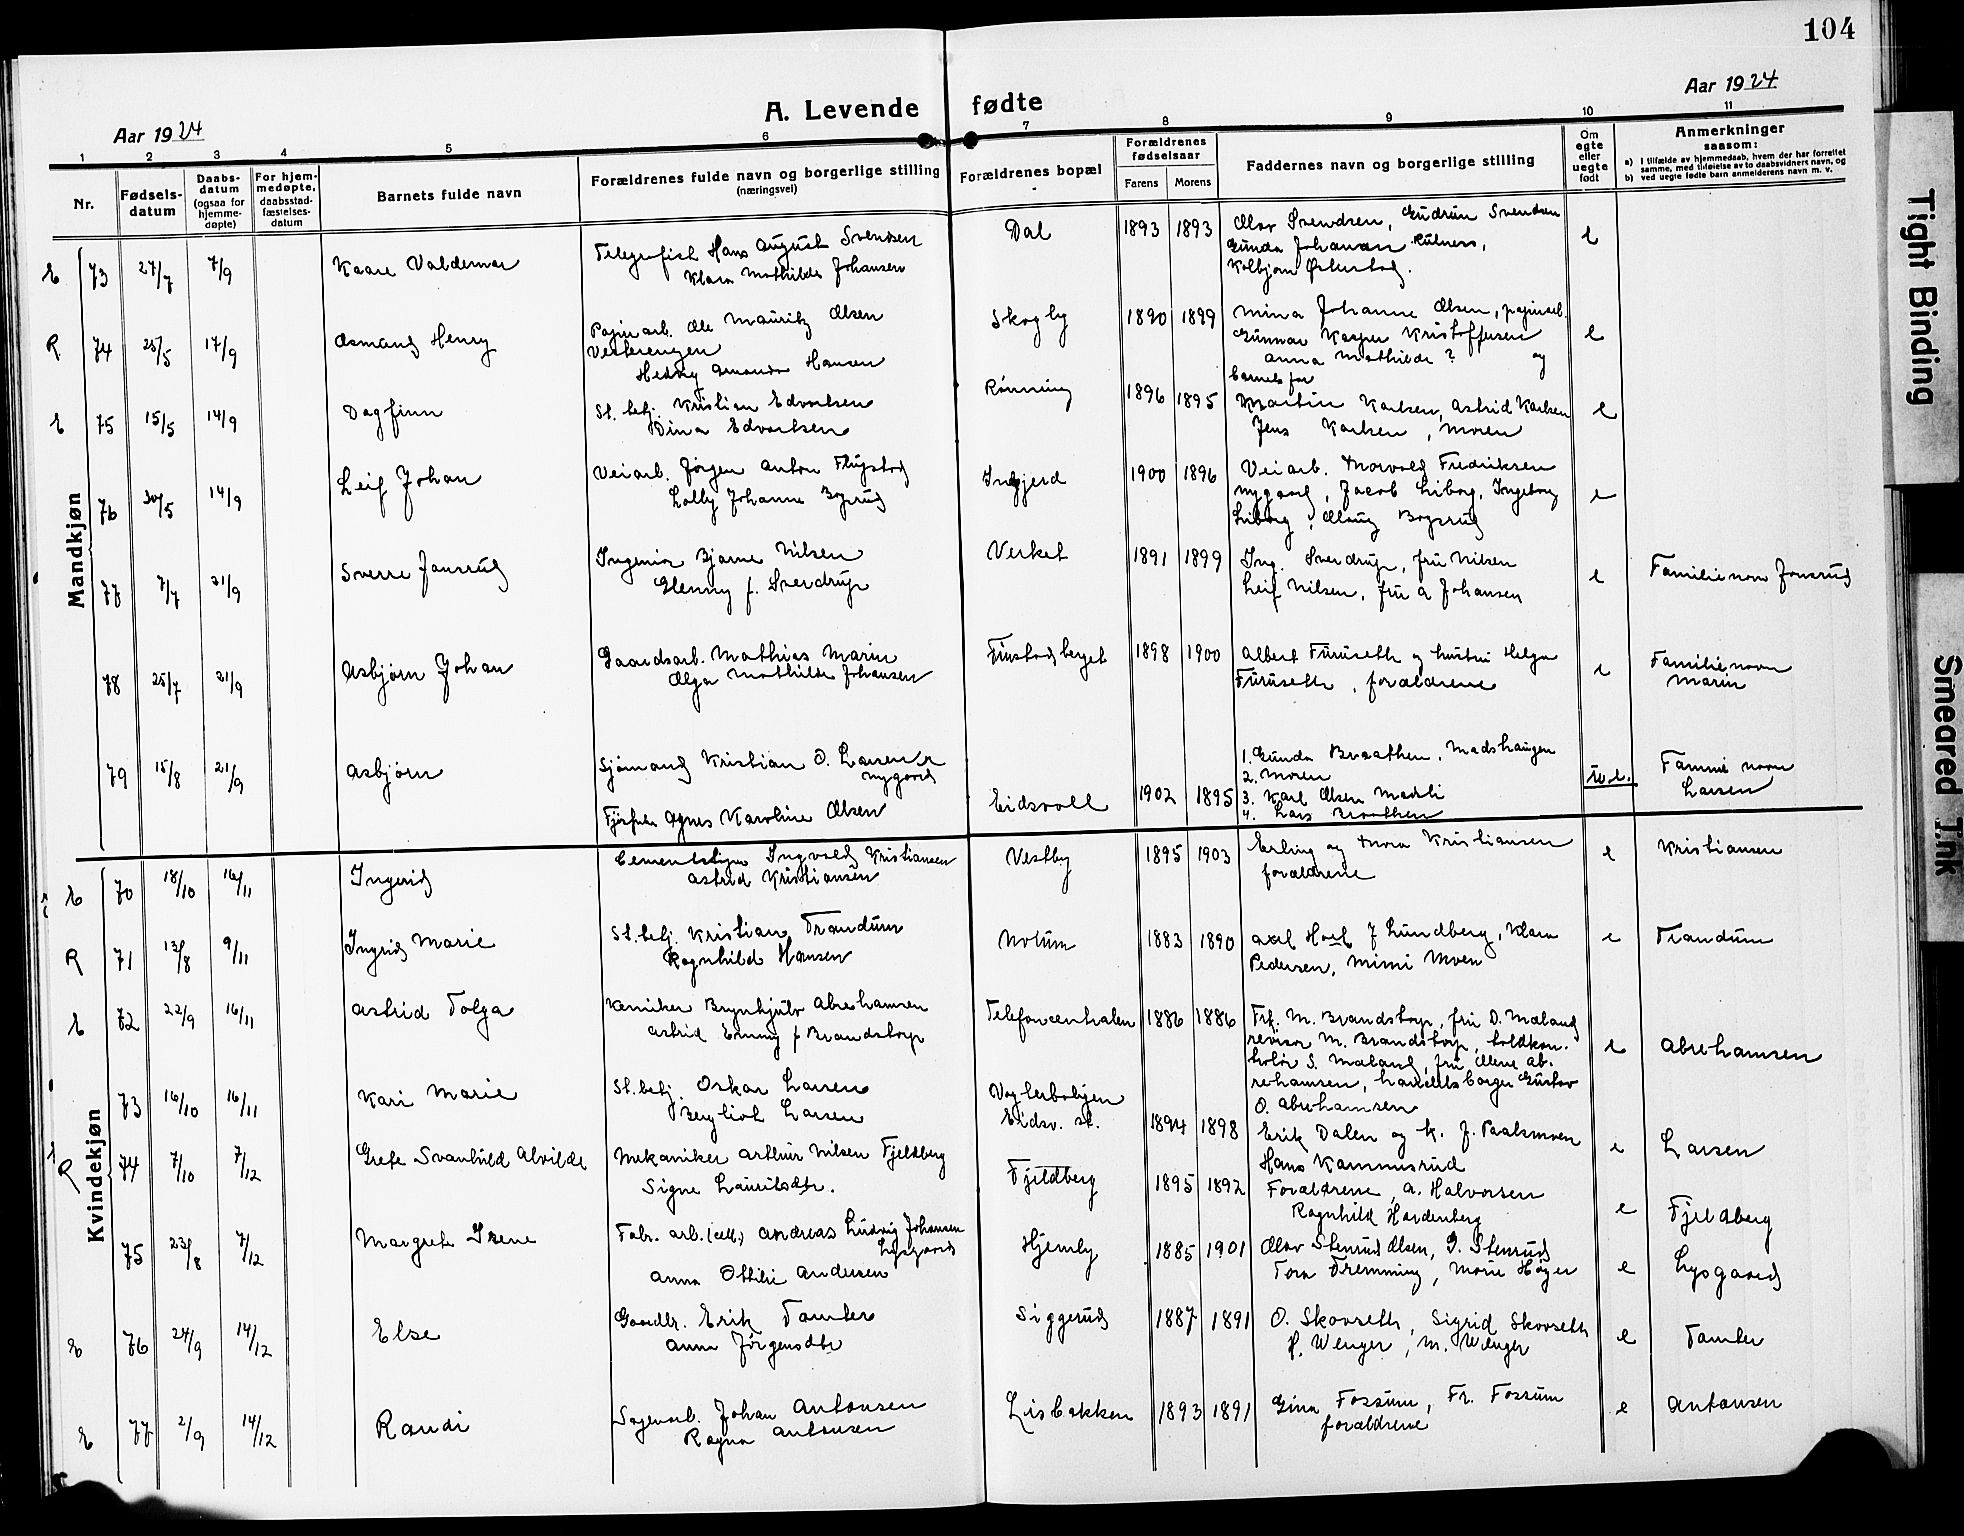 104
Aar 1924
A. Levende fødte
Aar 1924
1 2 3 4 5 6 7 8 9 10 11
Nr.
Fødsels-
datum
Daabs-
datum
(ogsaa for
hjemme-
døpte)
For hjem-
medøpte,
daabsstad-
fæstelses-
datum
Barnets fulde navn
Forældrenes fulde navn og borgerlige stilling
(næringsvei)
Forældrenes bopæl
Forældrenes
fødselsaar
Farens Morens
Faddernes navn og borgerlige stilling
Om
egte
eller
uegte
født
Anmerkninger
saasom:
a) I tilfælde av hjemmedaab, hvem der har forrettet
samme, med tilføielse av to daabsvidners navn, og
b) ved uegte fødte barn anmelderens navn m. v.
Mandkjøn
E 73 27/7 7/9 Kaare Valdemar
Telegrafist Hans August Svendsen
Klara Mathilde Johansen
Dal 1893 1893
Olav Svendsen, Gudrun Svendsen
Gunda Johansen
Kolbjørn
e
R 74 25/5 17/9 Asmand Henry
Papirarb. Ole Mauritz Olsen
Vesterengen
Hedvig Amanda Hansen
Skogly 1890 1899
Mina Johanne Olsen, papirarb.
Gunnar Kasper Kristoffersen
Anna Mathilde ? og
barnets far
e
E 75 15/5 14/9 Dagfinn
St. betj. Kristian Edvartsen
Dina Edvartsen
Rønning 1896 1895
Martin Karlsen, Astrid Karlsen
Jens Karlsen, moren
e
76 30/5 14/9 Leif Johan
Veiarb. Jørgen Anton Flugstad
Lolly Johanne Bogsrud
1900 1896
Veiarb. Thorvald Fredriksen
Nygaard, Jacob Liborg, Ingeborg
Liborg, Olaug Bogsrud
e
77 7/7 21/9 Sverre Jonsrud
Ingeniør Bjarne Nilsen
Glenny f. Sverdrup
Verket 1891 1899
Ing. Sverdrup, fru Nilsen
Leif Nilsen, fru A Johansen
e Familienavn Jonsrud
78 25/7 21/9 Asbjørn Johan
Gaardsarb. Mathias Marin
Olga Mathilde Johansen
Finstadberget 1898 1900
Albert Furuseth og hustru Helga
Furuseth, forældrene
e Familienavn
Marin
79 15/8 21/9 Asbjørn
Sjømand Kristian O. Larsen
Nygaard
Agnes Karoline Olsen
Eidsvoll 1902 1895
1. Gunda Braathen, Madshaugen
2. Moren
3. Karl Olsen Madsli
4. Lars Braathen
u.e. Familienavn
Larsen
Kvindekjøn
E 70 18/10 16/11 Ingerid
Ingvald Kristiansen
Astrid Kristiansen
Vestby 1895 1903
Erling og Thora Kristiansen
forældrene
e Kristiansen
R 71 13/8 9/11 Ingrid Marie
St. betj. Kristian Trandum
Ragnhild Hansen
Molum 1883 1890
Axel J Lundberg, Klara
Pedersen, Mimi Moen
e Trandum
E 72 22/9 16/11 Astrid Tolga
Kemiker Brynhjulv Abrahamsen
Astrid Emmy f Brandstorp
Telefoncentralen 1886 1886
Frk. M. Brandstorp, fru D. Mæland
revisor M. Brandstorp, toldkon-
tolør S. Mæland, fru Ab-
rehamsen, Gustav
O. Abrehamsen
e Abrehamsen
73 16/10 16/11 Kari Marie
St. betj. Oskar Larsen
Bergliot Larsen
Voglerboligen
Eidsv. st. 1894 1898
Erik Dalen og K. J. Paalsmoen
Hans Kammesrud
e Larsen
R 74 7/10 7/12 Grete Svanhild Alvilde
Mekaniker Arthur Nilsen Fjeldberg
Signe Lauritsdtr.
Fjeldberg 1895 1892
Forældrene, A. Halvorsen
Ragnhild Hardenberg
e Fjeldberg
75 23/8 7/12 Margrete Irene
Fabr. arb. (cell.) Andreas Ludvig Johansen
Lysgaard
Anna Ottilie Andersen
Hjemly 1885 1901
Olav Stenrud Olsen, G. Stenrud
Tora Fremming, Marie Høyer
e Lysgaard
E 76 24/9 14/12 Else
Gaardbr. Erik Tamler
Anna Jørgensdtr
Siggerud 1887 1891
O. Skovseth, Sigrid Skovseth
H. Wenger, M. Wenger
e Tamler
E 77 2/9 14/12 Randi
Sagverb. Johan Antonsen
Ragna Antonsen
Lisbakken 1893 1891
Gina Fossum, Fr. Fossum
forældrene
e Antonsen
Tight Binding
Smeared Ink